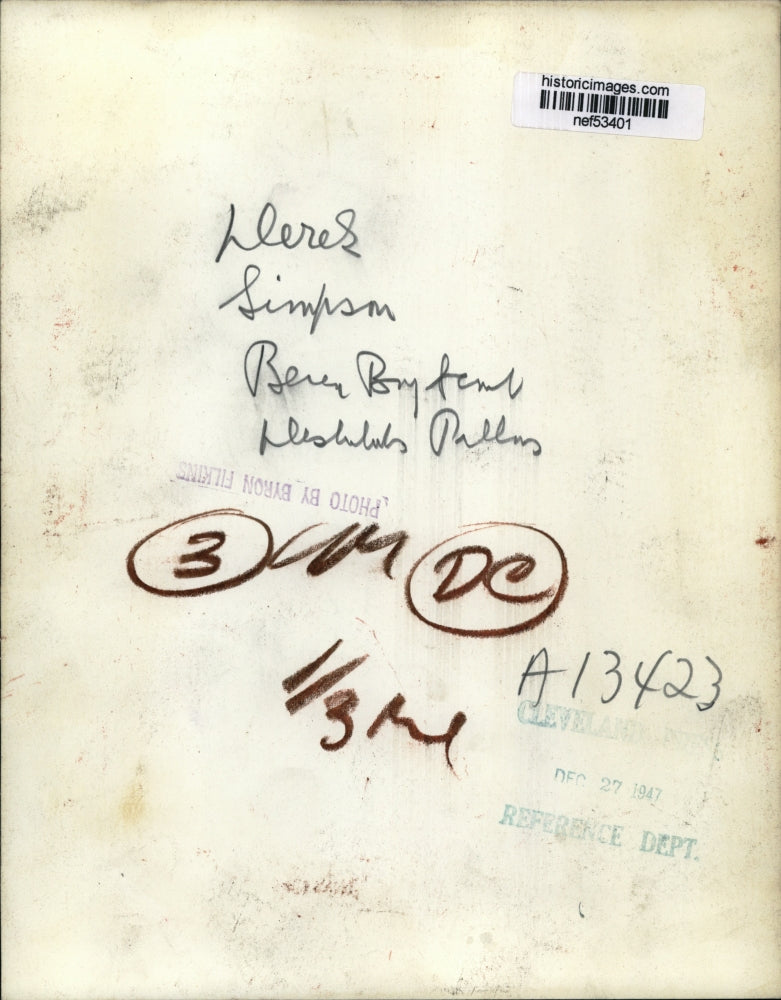 historicimages.com
nef53401
Derek
Simpson
Berea Boy
PHOTO BY BYRON FILKINS
3
DC
1/3
A13423
CLEVELAND
DEC 27 1947
REFERENCE DEPT.